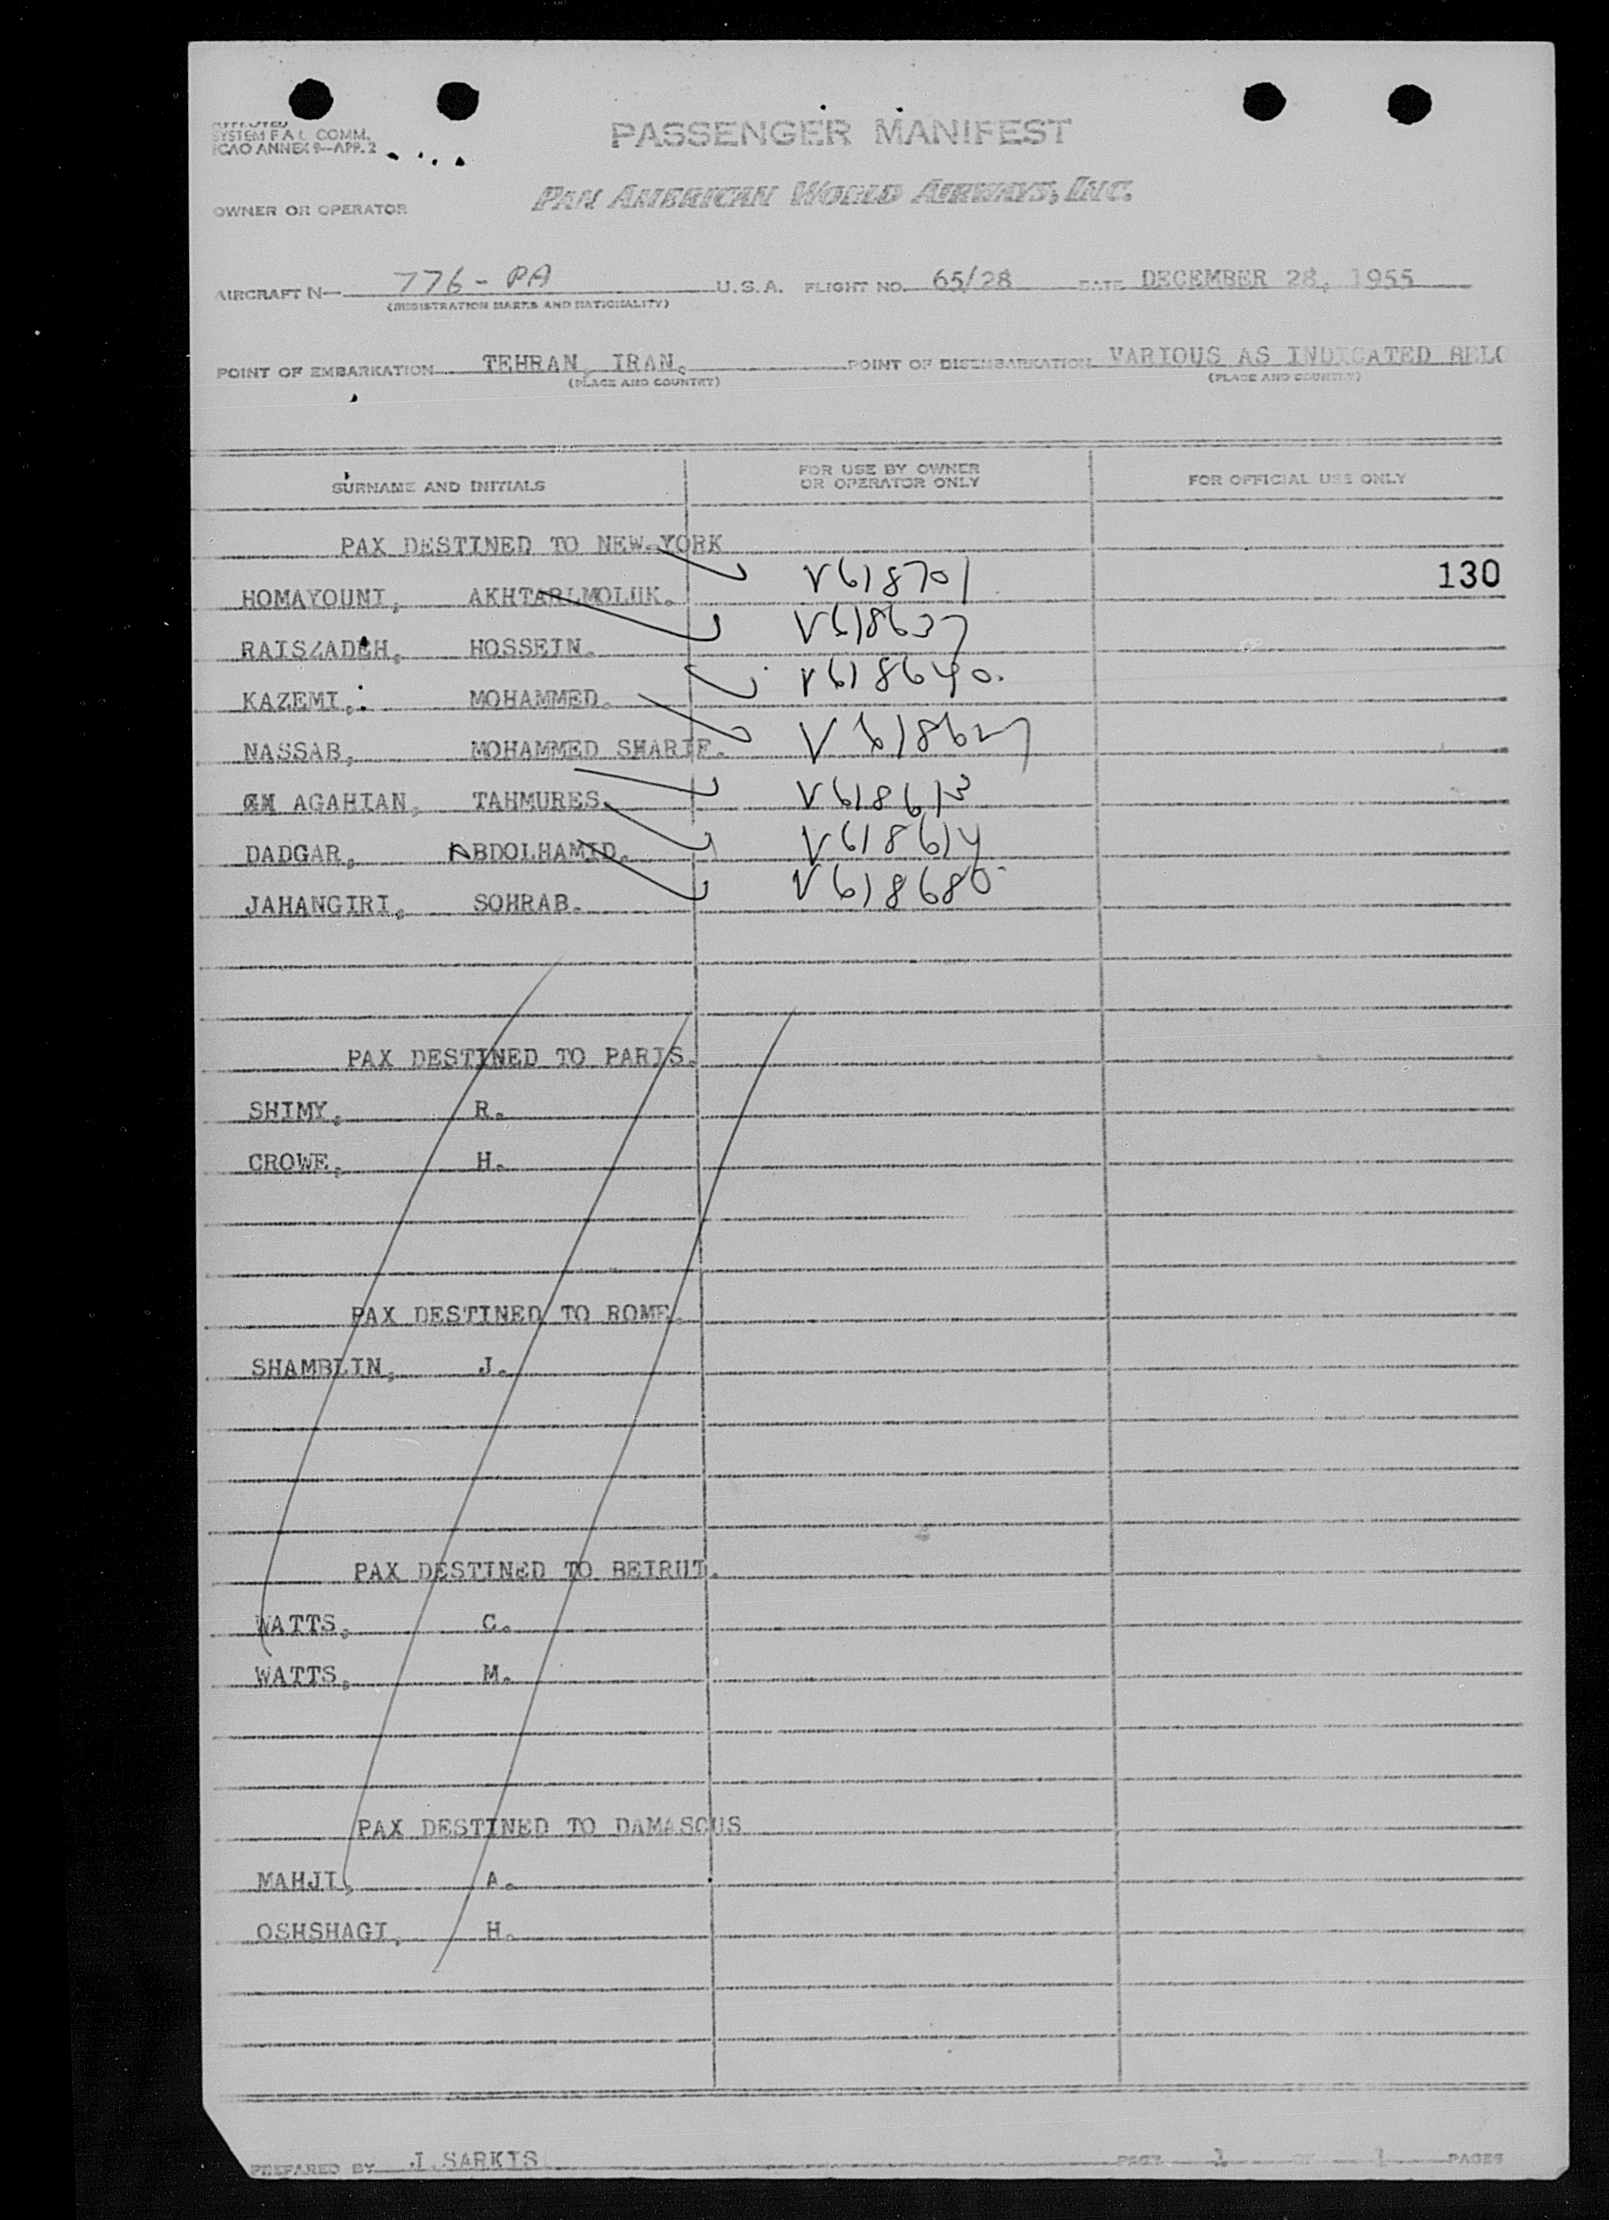 APPROVED
SYSTEM F A L COMM.
ICAO ANNEX 9—APP. 2
PASSENGER MANIFEST
OWNER OR OPERATOR PAN AMERICAN WORLD AIRWAYS, INC.
AIRCRAFT N— 776-PA U.S.A. FLIGHT NO. 65/28 DATE DECEMBER 28, 1955
(REGISTRATION MARKS AND NATIONALITY)
POINT OF EMBARKATION TEHRAN, IRAN. POINT OF DISEMBARKATION VARIOUS AS INDICATED BELO
(PLACE AND COUNTRY) (PLACE AND COUNTRY)
SURNAME AND INITIALS FOR USE BY OWNER OR OPERATOR ONLY FOR OFFICIAL USE ONLY
PAX DESTINED TO NEW YORK
HOMAYOUNI, AKHTARLMOLUK. V618701 130
RAISZADEH, HOSSEIN. V618637
KAZEMI, MOHAMMED. V618640.
NASSAB, MOHAMMED SHARIF. V618627
AGAHIAN, TAHMURES. V618613
DADGAR, ABDOLHAMID. V618614
JAHANGIRI, SOHRAB. V618680
PAX DESTINED TO PARIS.
SHIMY, R.
CROWE, H.
PAX DESTINED TO ROME.
SHAMBLIN, J.
PAX DESTINED TO BEIRUT.
WATTS, C.
WATTS, M.
PAX DESTINED TO DAMASCUS
MAHJI, A.
OSHSHAGI, H.
PREPARED BY J.SARKIS PAGE 1 OF 1 PAGES